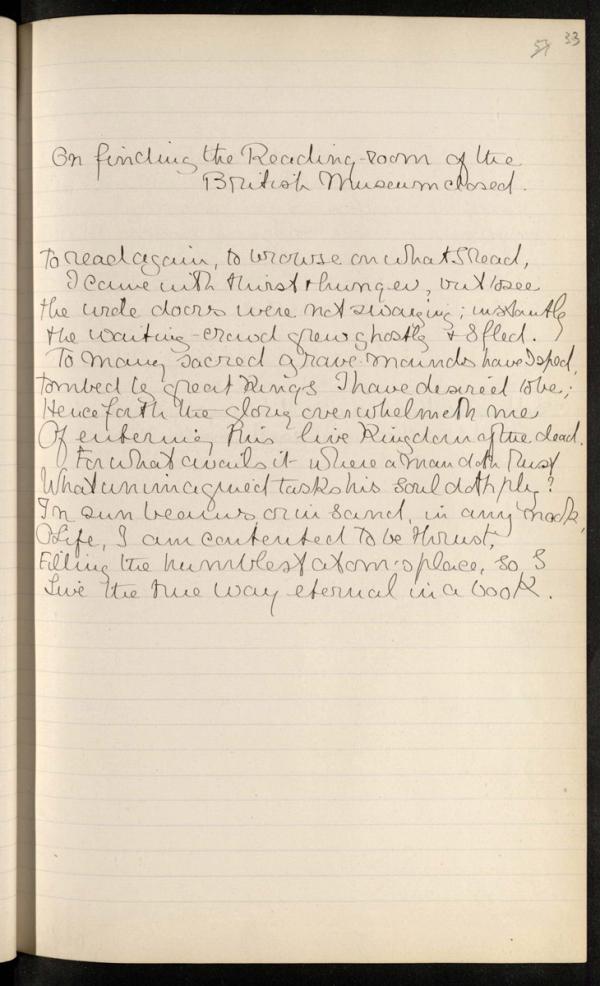 33
On finding the Reading-room of the
British Museum closed.
To read again, to browse on what I read,
I came with thirst & hunger, but to see
the wide doors were not swaying; instantly
the waiting-crowd grew ghostly & I fled.
To many sacred grave-mounds have I sped,
tombed by great Kings I have desired to be;
Henceforth the glory overwhelmeth me
Of entering this live Kingdom of the dead.
For what avails it where a man doth rust
What unimagined tasks his soul doth ply?
In sun beams or in sand, in any nook,
O Life, I am contented to be thrust,
Filling the humblest atom's place, so I
Live the true way eternal in a book.